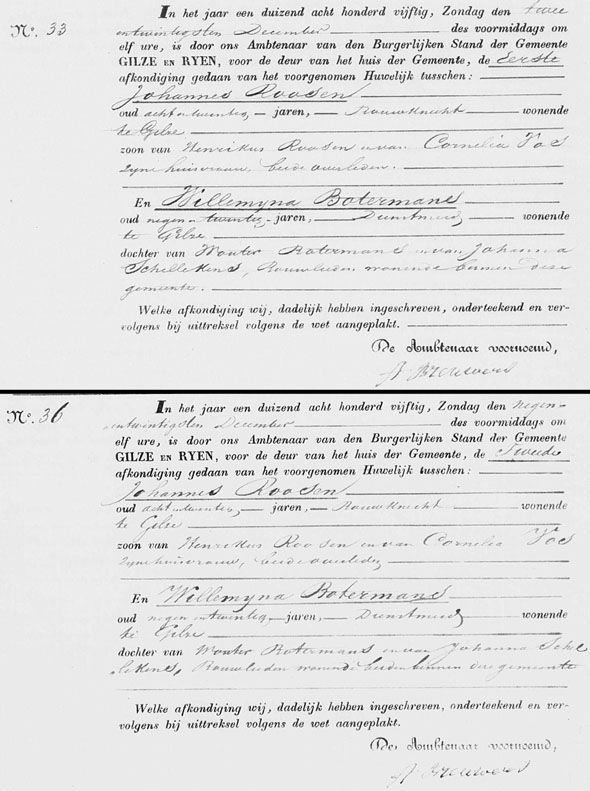 In het jaar een duizend acht honderd vijftig, Zondag den twee
Nº. 33
entwintigsten December des voormiddags om
elf ure, is door ons Ambtenaar van den Burgerlijken Stand der Gemeente
GILZE EN RYEN, voor de deur van het huis der Gemeente, de Eerste
afkondiging gedaan van het voorgenomen Huwelijk tusschen:
Johannes Roosen
oud achtentwintig jaren, Bouwknecht wonende
te Gilze
zoon van Henrikus Roosen en van Cornelia Vos
zyne huisvrouw, beide overleden.
En Willemyna Botermans
oud negen-twintig jaren, Dienstmeid wonende
te Gilze
dochter van Wouter Botermans en van Johanna
Schellekens, Bouwlieden wonende binnen deze
gemeente.
Welke afkondiging wij, dadelijk hebben ingeschreven, onderteekend en ver-
volgens bij uittreksel volgens de wet aangeplakt.
De Ambtenaar voornoemd,
Brouwers
In het jaar een duizend acht honderd vijftig, Zondag den negen-
Nº. 36
entwintigsten December des voormiddags om
elf ure, is door ons Ambtenaar van den Burgerlijken Stand der Gemeente
GILZE EN RYEN, voor de deur van het huis der Gemeente, de Tweede
afkondiging gedaan van het voorgenomen Huwelijk tusschen:
Johannes Roosen
oud achtentwintig jaren, Bouwknecht wonende
te Gilze
zoon van Henrikus Roosen en van Cornelia Vos
zyne huisvrouw, beide overleden
En Willemyna Botermans
oud negenentwintig jaren, Dienstmeid wonende
te Gilze
dochter van Wouter Botermans en van Johanna Schel
lekens, Bouwlieden wonende beiden binnen deze gemeente
Welke afkondiging wij, dadelijk hebben ingeschreven, onderteekend en ver-
volgens bij uittreksel volgens de wet aangeplakt.
De Ambtenaar voornoemd,
Brouwers